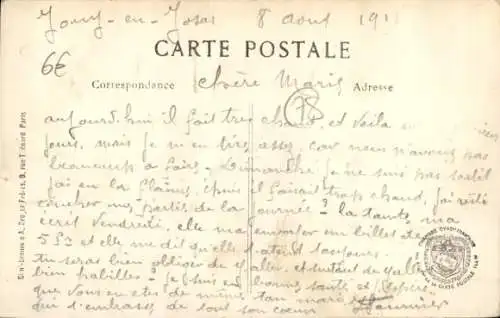 Jouy-en-Josas 8 août 191
CARTE POSTALE
6€
Correspondance chère Marie Adresse
78
aujourd'hui il fait très chaud, et voila
jours, mais je m'en tire assez, car nous n'avons pas
beaucoup a faire. Dimanche je ne suis pas sorti
j'ai en la il faisait trop chaud, j'ai resté
coucher une partie de la journée. la tante m'a
écrit Vendredi, elle m'a un billet de
5 Frs et elle me dit qu'elle t'attend toujours.
tu serai bien obliger d'y aller, et surtout
bien habiller. je suis en bonne santé, et j'espère
que vous en etes de même. ton mari
qui t'embrasse de tout son coeur